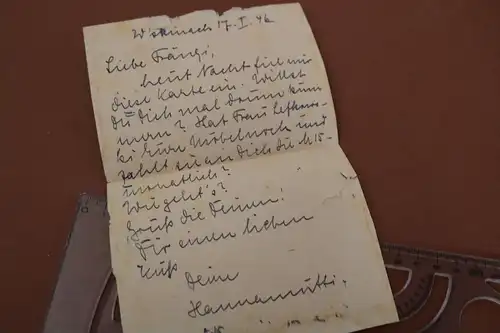 17.I.46
Liebe Fränzi,
heut Nacht fiel mir
diese Karte ein. Willst
du dich mal drum küm
mern? Hat Frau
ki Eure Möbel noch und
zahlt sie an dich die M 15-
monatlich?
Wie geht's?
Grüß die Deinen!
Dir einen lieben
Kuß
Deine
Hannamutti.